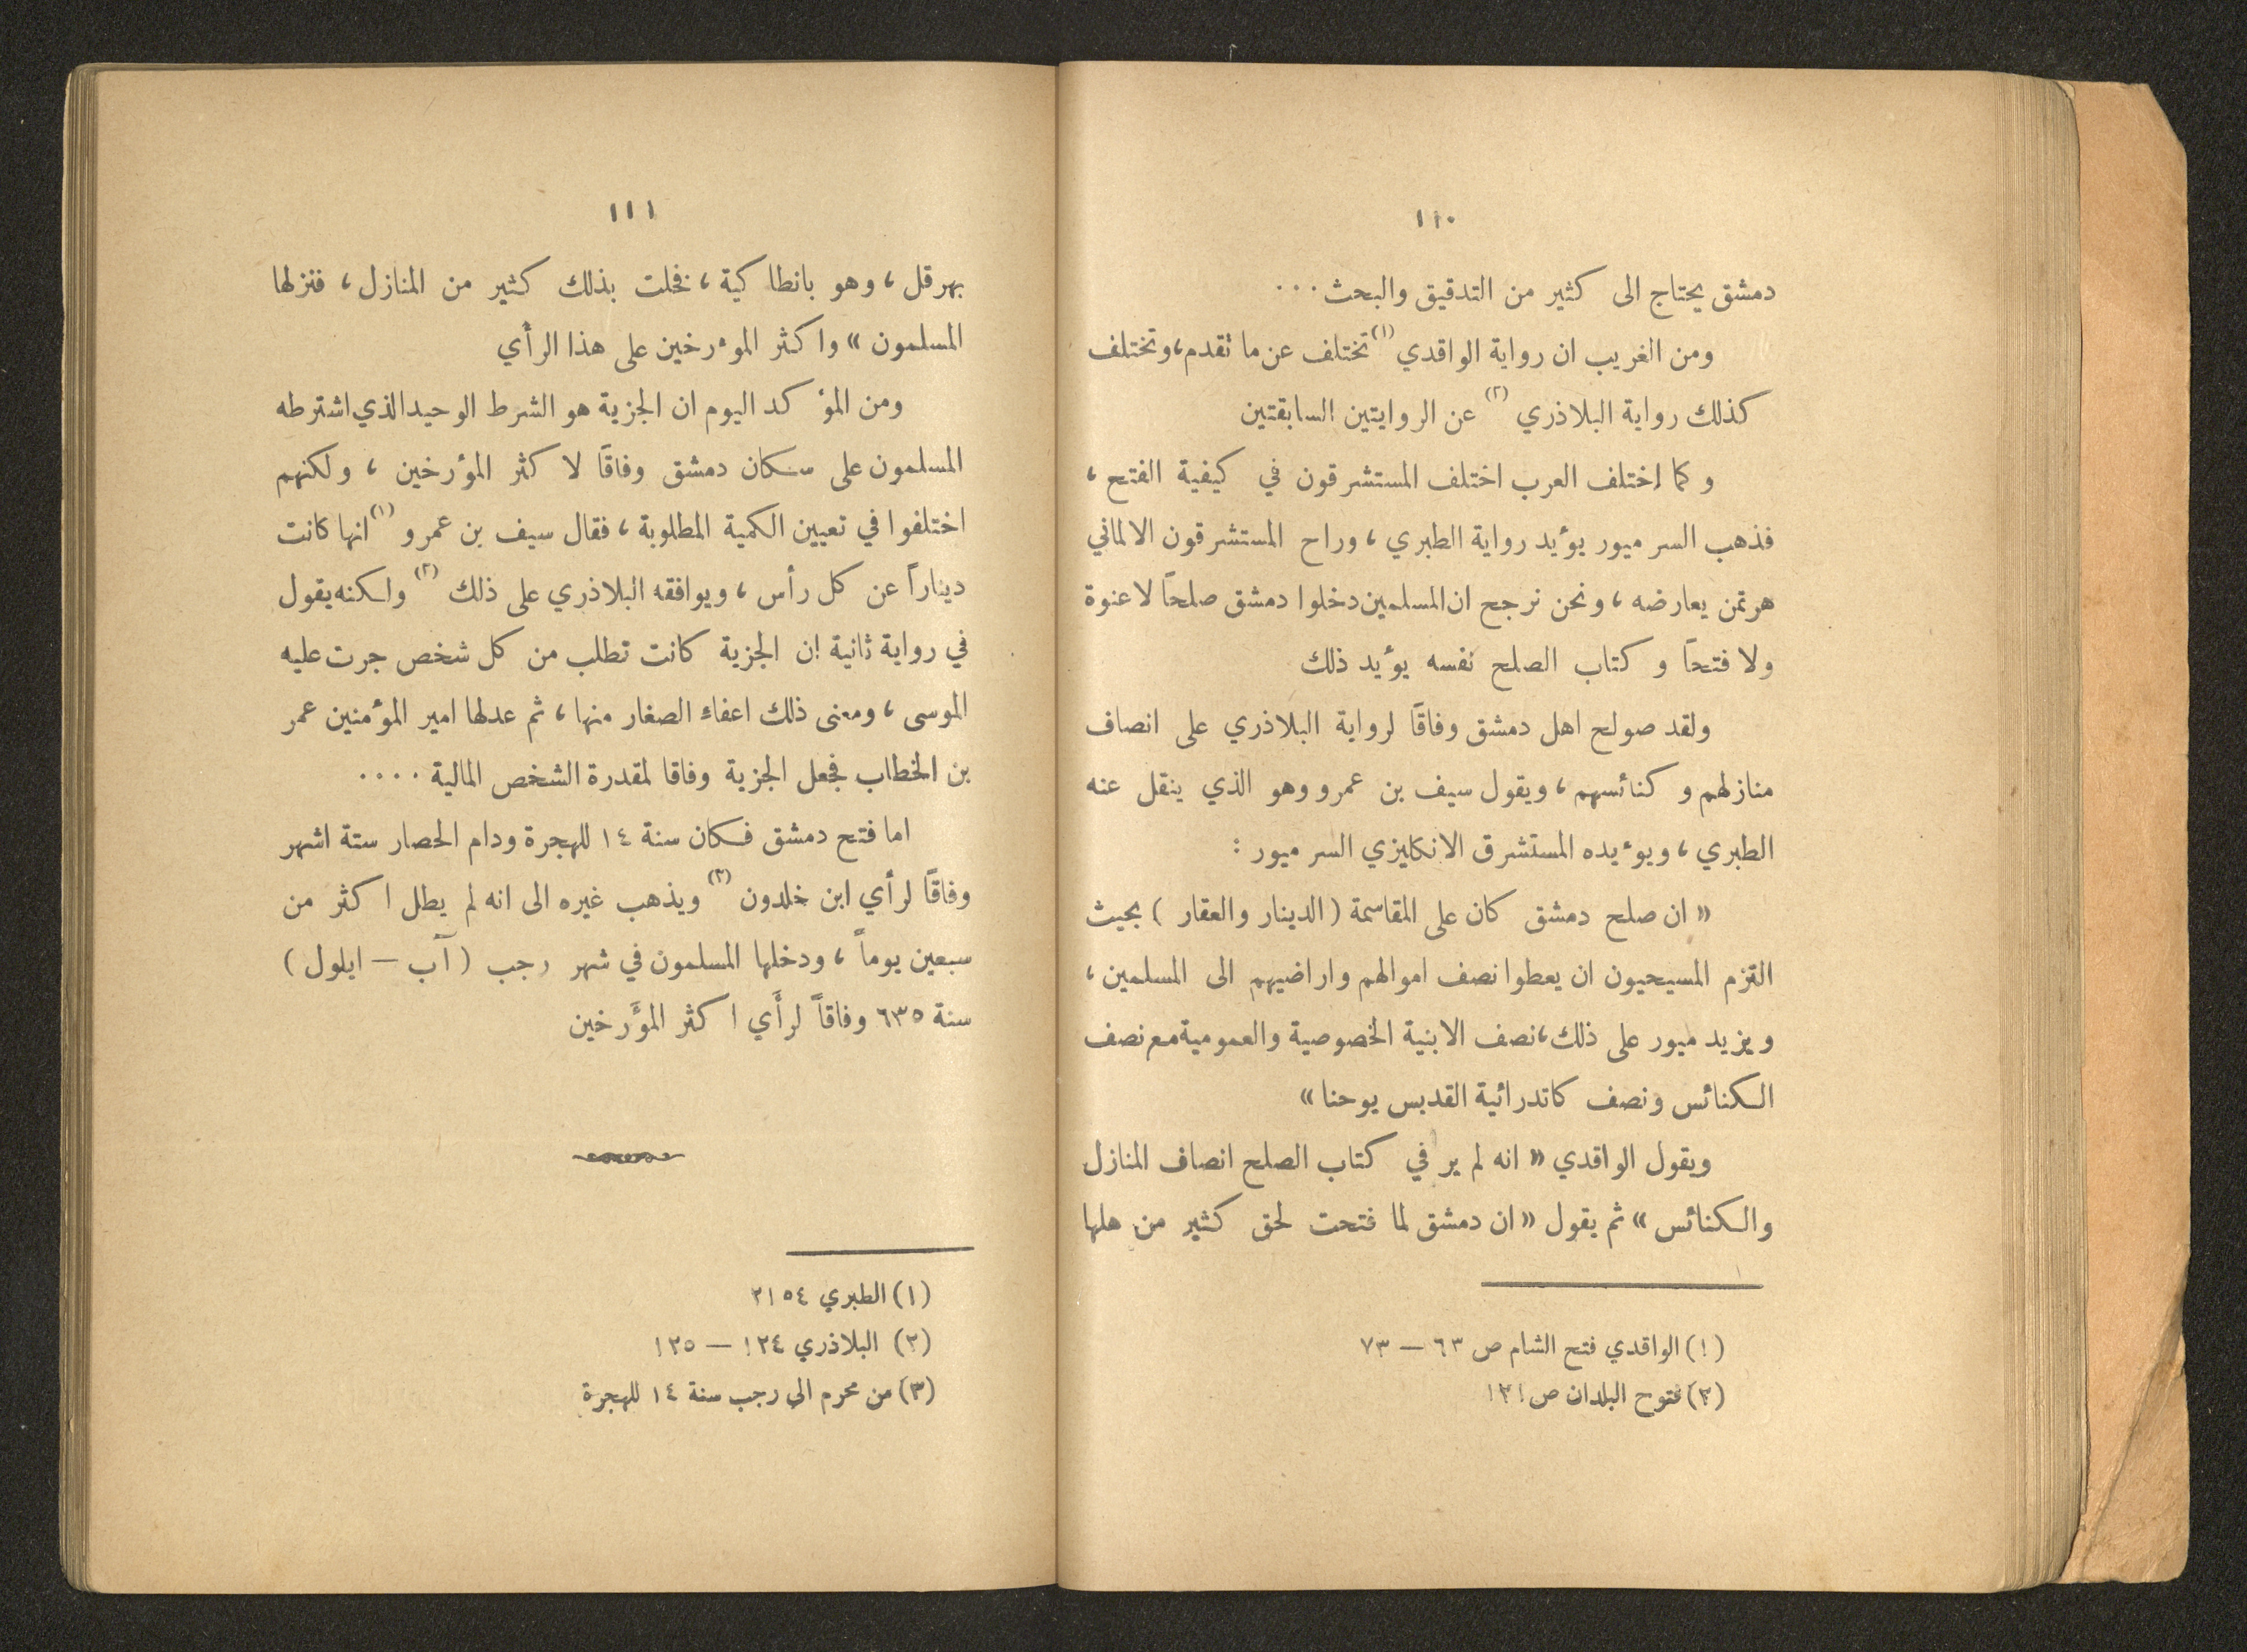 ١١٠
دمشق يحتاج الى كثير من التدقيق والبحث ...
ومن الغريب ان رواية الواقدي (١) تختلف عن ما تقدم، وتختلف
كذلك رواية البلاذري (٢) عن الروايتين السابقتين
وكما إختلف العرب اختلف المستشرقون في كيفية الفتح ،
فذهب السر ميور يؤيد رواية الطبري ، وراح المستشرقون الالماني
هرتمن يعارضه ، ونحن نرجح ان المسلمين دخلوا دمشق صلحاً لا عنوة
ولا فتحاً وكتاب الصلح نفسه يؤيد ذلك
ولقد صولح اهل دمشق وفاقاً لرواية البلاذري على انصاف
منازلهم وكنائسهم ، ويقول سيف بن عمرو وهو الذي ينقل عنه
الطبري ، ويؤيده المستشرق الانكليزي السر ميور :
« ان صلح دمشق كان على المقاسمة ( الدينار والعقار ) بحيث
التزم المسيحيون ان يعطوا نصف اموالهم واراضيهم الى المسلمين ،
ويزيد ميور على ذلك، نصف الابنية الخصوصية والعمومية مع نصف
الكنائس ونصف كاتدرائية القديس يوحنا »
ويقول الواقدي « انه لم ير في كتاب الصلح انصاف المنازل
والكنائس » ثم يقول « ان دمشق لما فتحت لحق كثير من هلها
(١) الواقدي فتح الشام ص ٦٣ — ٧٣
(٢) فتوح البلدان ص ١٢١
١١١
بهرقل ، وهو بانطاكية ، فخلت بذلك كثير من المنازل ، فنزلها
المسلمون » واكثر المؤرخين على هذا الرأي
ومن المؤكد اليوم ان الجزية هو الشرط الوحيد الذي اشترطه
المسلمون على سكان دمشق وفاقاً لاكثر المؤرخين ، ولكنهم
اختلفوا في تعيين الكمية المطلوبة ، فقال سيف بن عمرو (١) انها كانت
ديناراً عن كل رأس ، ويوافقه البلاذري على ذلك (٢) ولكنه يقول
في رواية ثانية إن الجزية كانت تطلب من كل شخص جرت عليه
الموسى ، ومعنى ذلك اعفاء الصغار منها ، ثم عدلها امير المؤمنين عمر
بن الخطاب فجعل الجزية وفاقا لمقدرة الشخص المالية ....
اما فتح دمشق فكان سنة ١٤ للهجرة ودام الحصار ستة اشهر
وفاقاً لرأي ابن خلدون (٣) ويذهب غيره الى انه لم يطل اكثر من
سبعين يوماً ، ودخلها المسلمون في شهر رجب ( آب — ايلول )
سنة ٦٣٥ وفاقاً لرأي اكثر المؤرخين
(١) الطبري ٢١٥٤
(٢) البلاذري ١٢٤ — ١٢٥
(٣) من محرم الى رجب سنة ١٤ للهجرة